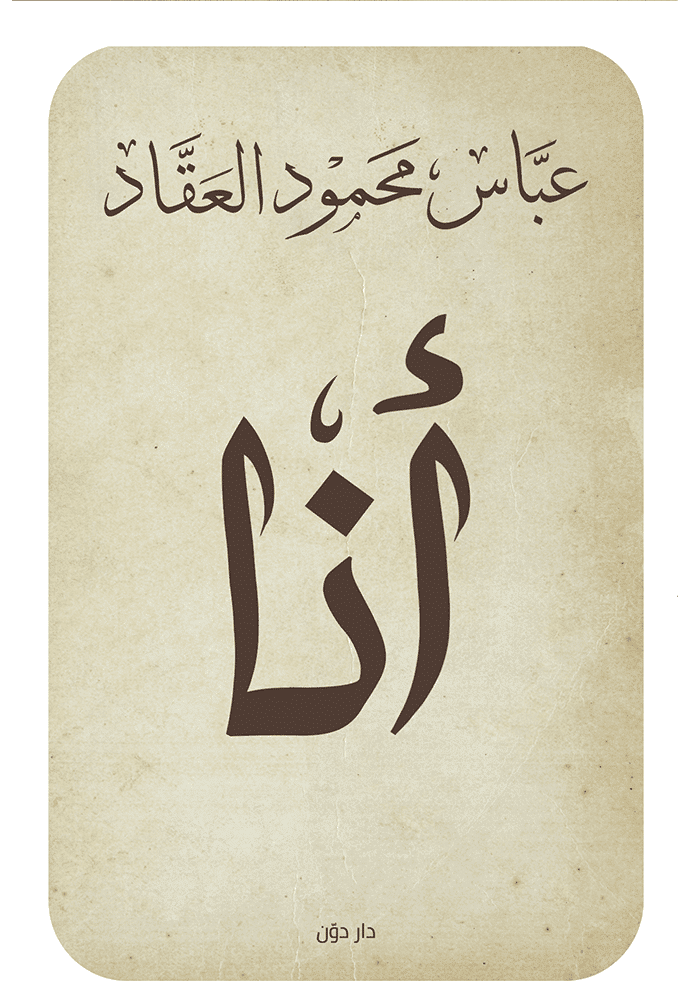 عبَّاس محمَود العَقَّاد
أنا
دار دوّن